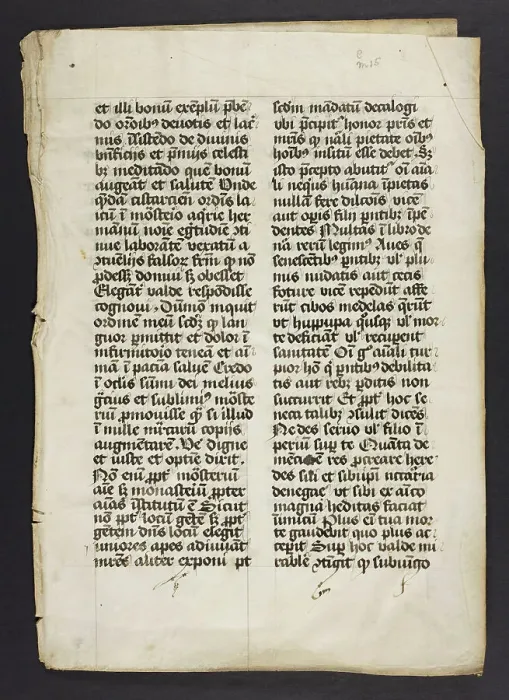 et illi bonū exēplū p̄be
do orōib⁹ deuotis et lac̄
mis īsistēdo de diuinis
bn̄ficiis et p̄mijs celesti
bꝫ meditādo que bonū
augeāt et salutē Unde
qⁱdā cistarciēn ordīs la
icū ī mōsteīo aqrie her
mānū noīe egtudiē ꝯti
nue laborātē vexatū a
ꝯtuelijs falsoꝝ frm̄ qͥ nō
ꝓdessꝫ domui sꝫ obesset
Elegāt͛ valde respōdisse
cognoui · Dūmō inquit
ordinē meū scdꝫ qͥ lan
guor ꝑmittit et dolor ī
infirmitoīo teneā et aī
mā ī paciā saluē Credo
ī oclis sūmi dei melius
gͣtius et sublimi⁹ mōste
riū ꝓmouisse qͣ si illud
ī mille mͬcarū copijs
augmētarē · Ve͛ digne
et iuste et optie dixit ·
Nō eni͛ ꝓpt͛ mōsteriū
aīe sꝫ monasteriū ꝓpter
aīas īstitutū ē Sicut
nō ꝓpt͛ locū gētē sꝫ ꝓpt͛
gētem dn̄s locū elegit
iuniores apes adiuuāt
mr̄es aliter exponi pt
scdm̄ mādatū decalogi
vbi p̄cipit͛ honor pr̄is et
mr̄is qͥ nāli pietate oīb⁹
hoīb⁹ insitū esse debet · Sꝫ
isto p̄cepto abutit͛ oī aīa
li neqⁱus hūana īpietas
nullā fere dilcōis vicē
aut opis filij pn̄tibꝫ īpē
dentes Multas ī libro de
na rerū legim⁹ Aues qͥ
senescētib⁹ pn̄tibꝫ vl͛ plu
mis nudatis aut cecis
foture vicē repediūt affe
rūt cibos medelas qͥrūt
vt huppupa qⁱusqꝫ vl͛ mor
te deficiāt vl͛ recipent
sanitatē Oī gͦ aīali tur
pior hō qͥ pn̄tibꝫ debilita
tis aut rebꝫ ꝑditis non
succurrit Et ꝓpt͛ hoc se
neca talibꝫ ꝯsulit dicēs
Ne des seruo vl͛ filio ī
periū suꝑ te
res ꝓcreare here
des
denegac̄ vt sibi ex aīco
magna heditas faciat
inimicū Plus eī tua mor
te gaudebit quo plus ac
cepit Suꝑ hoc valde mi
rabile ꝯtigit qͥ subiūgo